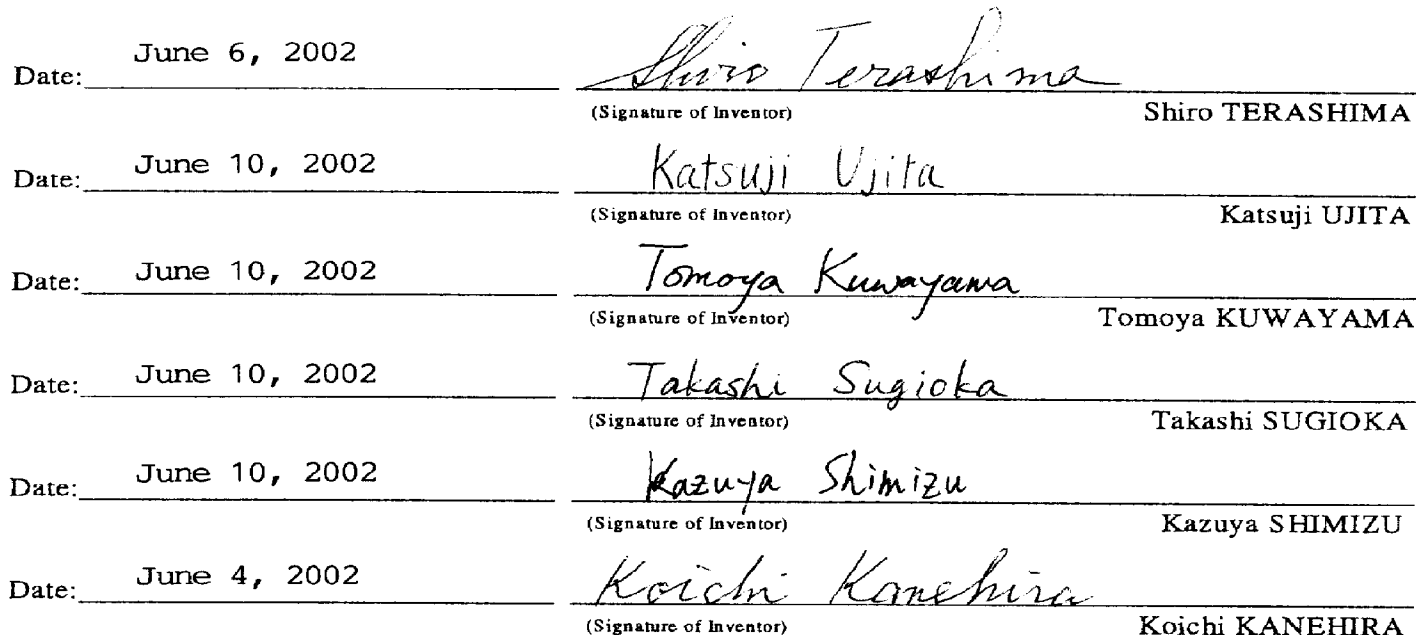 Date: June 6, 2002 Shiro Terashima
(Signature of Inventor) Shiro TERASHIMA
Date: June 10, 2002 Katsuji Ujita
(Signature of Inventor) Katsuji UJITA
Date: June 10, 2002 Tomoya Kuwayama
(Signature of Inventor) Tomoya KUWAYAMA
Date: June 10, 2002 Takashi Sugioka
(Signature of Inventor) Takashi SUGIOKA
Date: June 10, 2002 Kazuya Shimizu
(Signature of Inventor) Kazuya SHIMIZU
Date: June 4, 2002 Koichi Kanehira
(Signature of Inventor) Koichi KANEHIRA